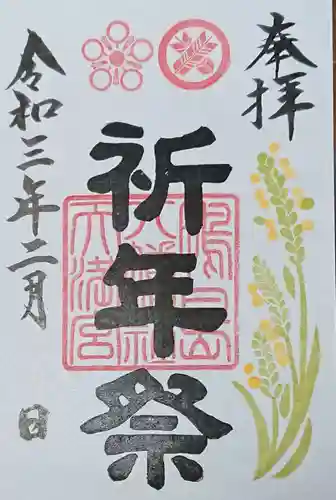 奉拝
祈年祭
天満宮
令和三年二月 日